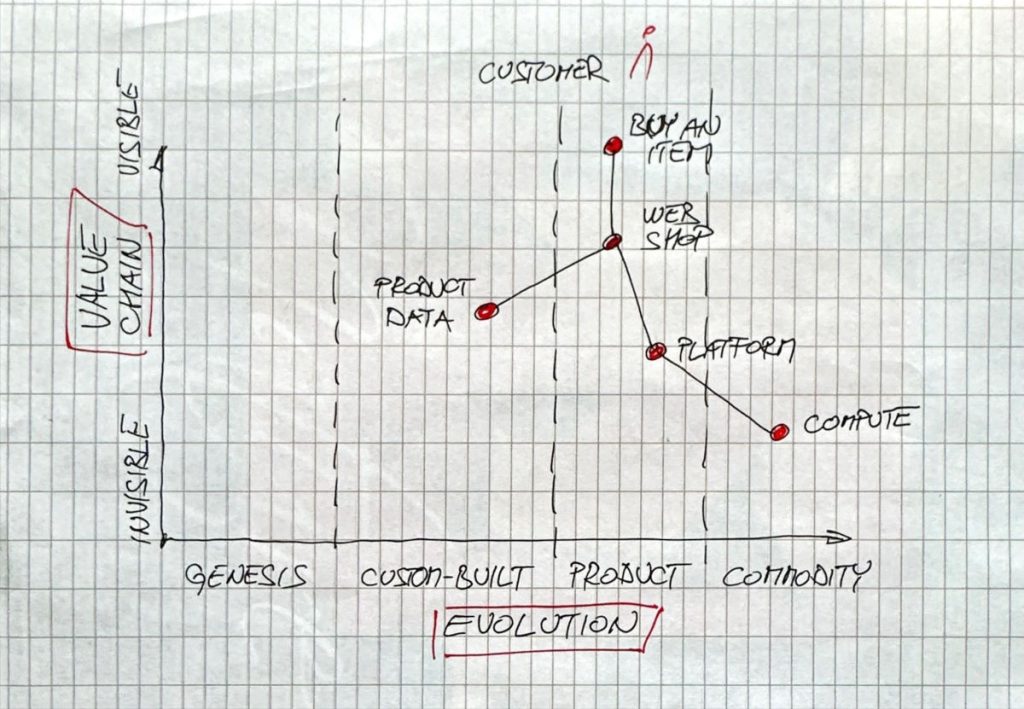 CUSTOMER
VISIBLE
BUY AN
ITEM
WEB
SHOP
VALUE
CHAIN
PRODUCT
DATA
PLATFORM
COMPUTE
INVISIBLE
GENESIS
CUSTOM-BUILT
PRODUCT
COMMODITY
EVOLUTION